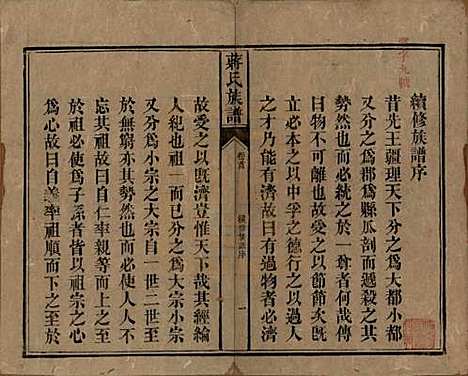 續修族譜序
昔先王疆理天下分之爲大都小都
又分之爲郡爲縣瓜剖而遞殺之其
勢然也而必統之於一尊者何哉傳
曰物不可以終離故受之以節節矣既
信矣以中孚之德行之以
之才乃能有濟故曰有過物者必濟
蔣氏族譜
卷首
續修族譜序
一
故受之以既濟豈惟天下哉其經綸
人紀也祖一而已分之爲大宗小宗
又分爲小宗之大宗自一世二世至
於無窮亦其勢然也而必使之不
忘其祖故曰自仁率親等而上之至
於祖爲子孫者皆以祖之心
爲心故曰自義率祖順而下之至於